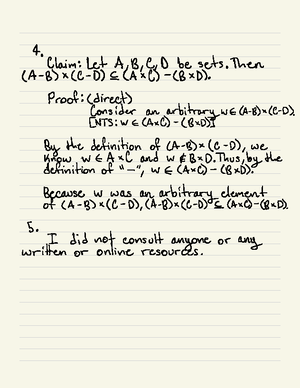 4.
Claim: Let A, B, C, D be sets. Then
(A-B)×(C-D) ⊆ (A×C)-(B×D).
Proof: (direct)
Consider an arbitrary w∈(A-B)×(C-D).
[NTS: w ∈ (A×C)-(B×D)]
By the definition of (A-B)×(C-D), we
know w∈A×C and w∉B×D. Thus, by the
definition of "-", w ∈ (A×C)-(B×D).
Because w was an arbitrary element
of (A-B)×(C-D), (A-B)×(C-D) ⊆ (A×C)-(B×D).
5.
I did not consult anyone or any
written or online resources.